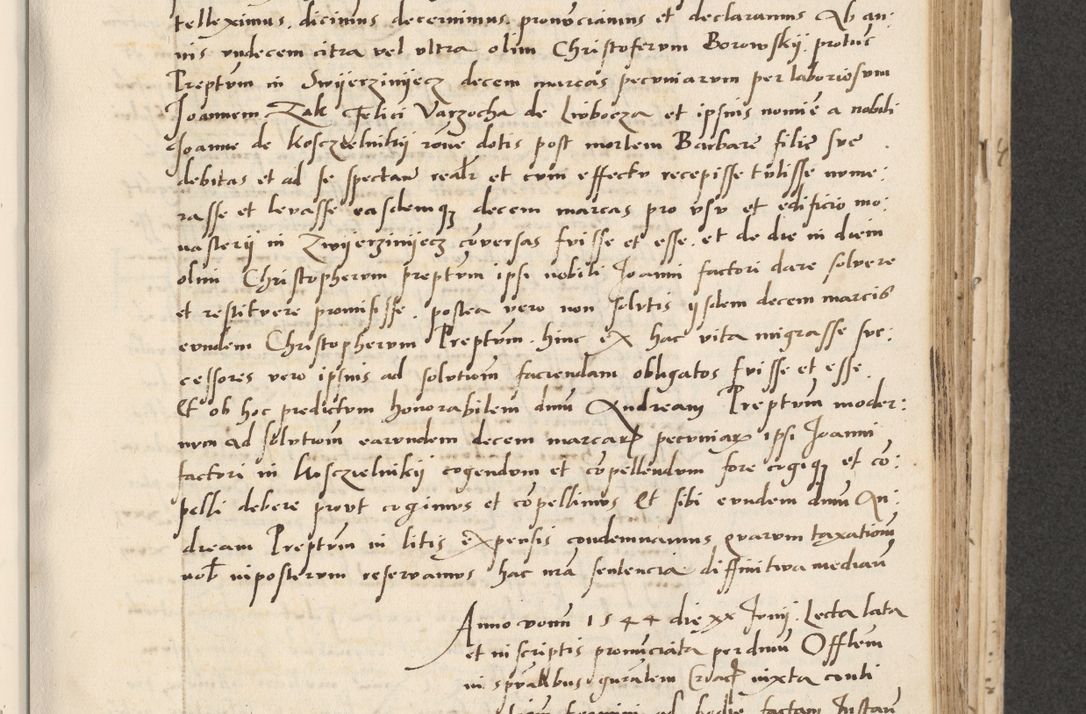 telleximus, dicimus decernimus, pronūcianus et declaramus Ab an:
nis vndecem citra vel vltra olim Christoferum Borowskij, protūc
Preptum in Swijerzinijecz decem marcas pecuniarum per laboriosum
Joannem Zak Felici Varzocha de Liwbocza et ipsius nomīe a nobili
Joanne de Kosczielnikij rōne dotis post mortem Barbare filie sue
debitas et ad se spectan̄ realr et cum effectu recepisse tulisse nume:
rasse et levasse easdemqȝ decem marcas pro vsu et edificio mo:
nasterij in Zwijerzinijecz cōversas fuisse et esse, et de die in diem
olim Christopherum preptum ipsi nobili Joanni factori dare solvere
et restituere promisisse, postea vero non solutis ijsdem decem marcis
eundem Christopherum Preptum, hinc ex hac vita migrasse suc:
cessores vero ipsius ad solutiom̄ faciendam obligatos fuisse et esse.
Et ob hoc predictum honorabilem dnm̄ Andream Preptum moder:
num ad solutiom̄ earundem decem marcaꝝ pecuniaꝝ ipsi Joanni
factori in Kosczielnikij cogendum et cōpellendum fore cogiqȝ et cō:
pelli debere prout cogimus et cōpellimus Et sibi eundem dnm̄ An:
dream Preptum in litis expensis condemnamus quarum taxationem̄
nob̄ inposterum reservamus hac nrā sentencia diffinitiva median̄
Anno domi 1544 die xx Junij, Lecta lata
et in scriptis pronūciata per dnm̄ Offlem
in spūalibus gnralem Crac̄ iuxta conti
ad hodie factam Instan̄